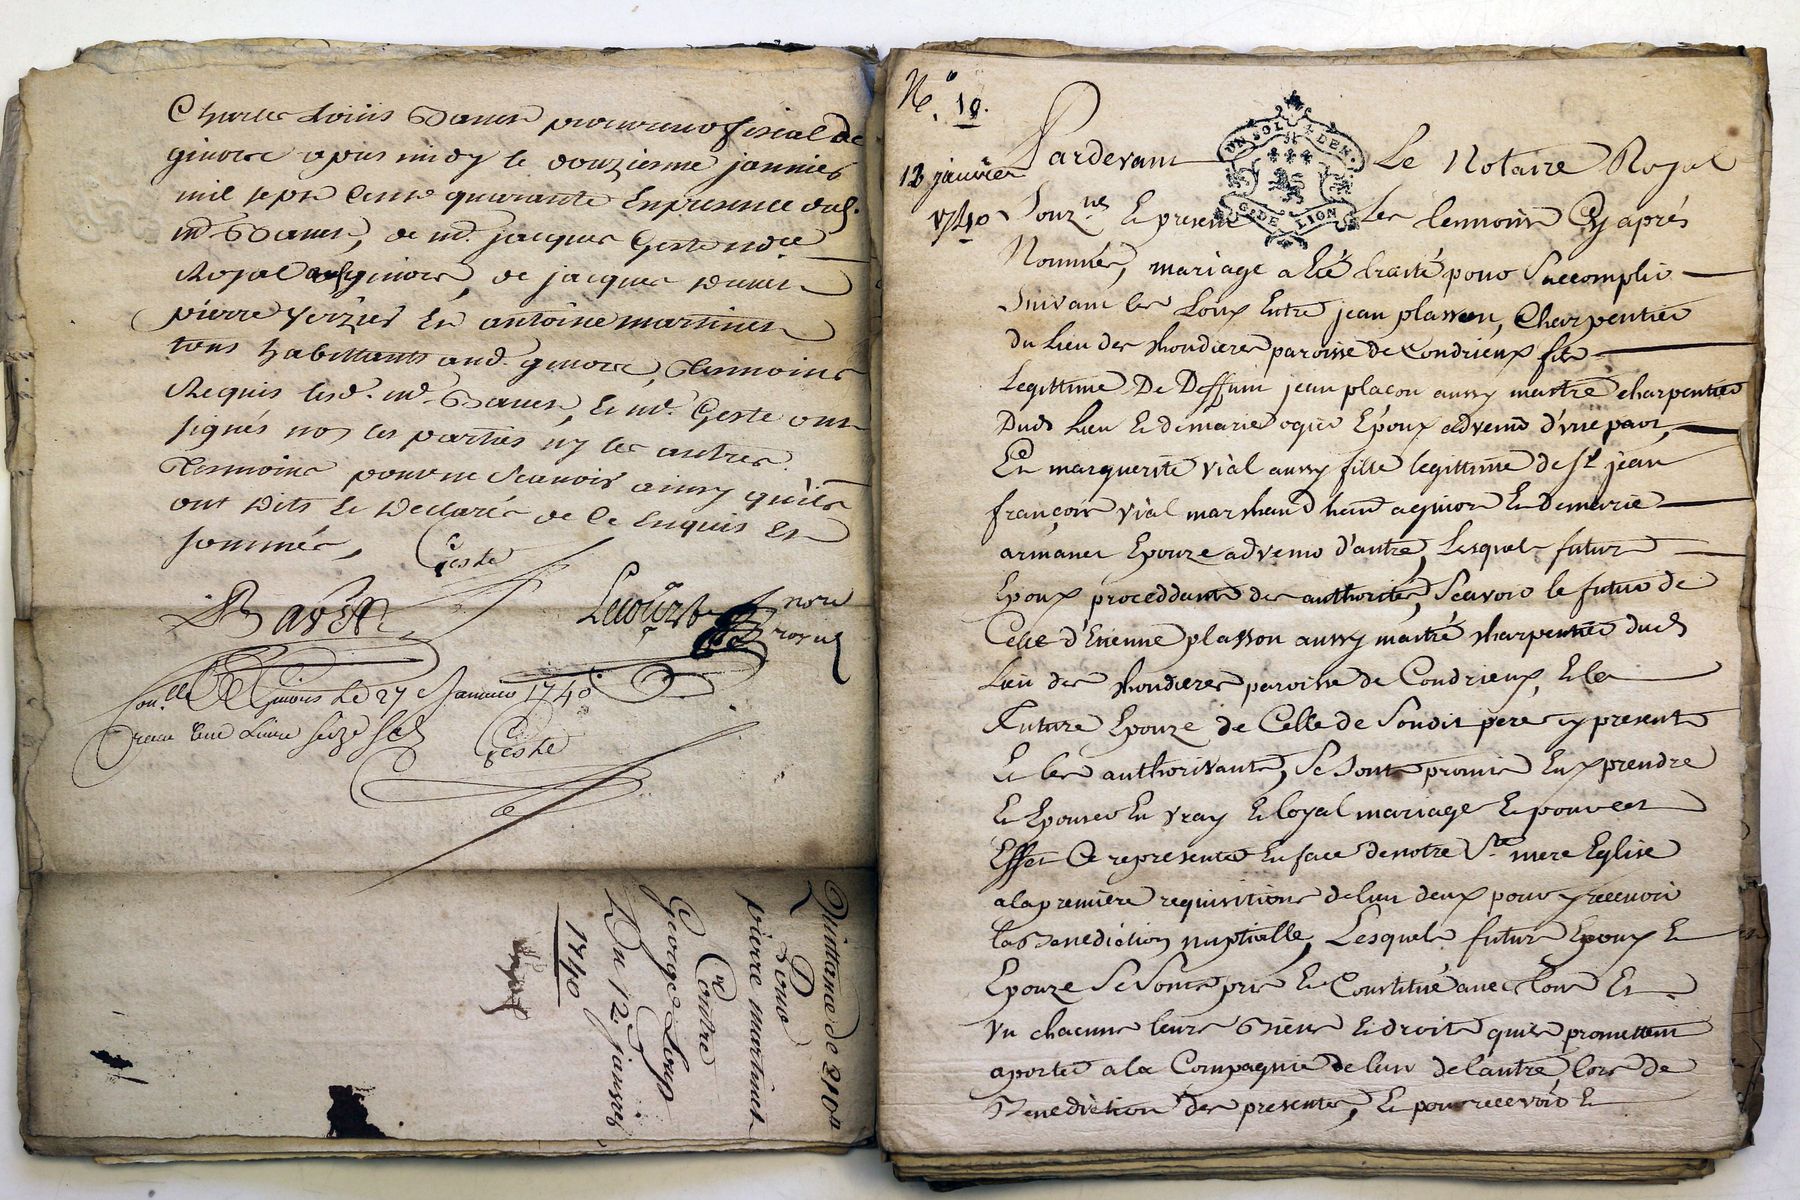 Charles Louis Baven procureur fiscal de
givors apres midy le douzieme janvier
mil sept cent quarante En presence dud.
me Baven, de me. jacques Geste no.re
Royal aud givors, de jacques
pierre verzier Et antoine martinet
tous habittants aud. givors, temoins
Requis lesd. me. Baven, & me. Geste ont
signés non les parties ny les autres
temoins pour ne scavoir ainsy qu'ils
ont dits & declarés de ce Enquis Et
sommés,
Geste
Baven
Lecourt
no.re
royal
Givors Le 27 Janvier 1740
Livre seize sols
Geste
Quittance de 210 ll
Pour
pierre martinet
Contre
George Loup
Du 12.e janvier
1740
No. 19.
12 janvier
1740
Pardevant Le Notaire Royal
UN SOL 4 DEN.
G. DE LION
Souz.né & presents Les temoins Cy aprés
Nommés, mariage a Eté traité pour S'accomplir
suivant les Loix Entre jean plasson, Charpentier
du Lieu des Rhondieres paroisse de Condrieux fils
Legittime De Deffunt jean placon aussy maitre charpentier
Dud Lieu & de marie ogier Epoux advenir d'vne part,
Et marguerite vial aussy fille legittime de Sr. jean
françois vial marchand ha.nt a givors & de marie
armanet Epouze advenir d'autre, Lesquels futurs
Epoux proceddants des authorités, Scavoir le futur de
Celle d'Etienne plasson aussy maitre charpentier dud
Lieu des Rhondieres paroisse de Condrieux, & la
Future Epouze de Celle de Sondit pere cy present
& les authorisants, Se sont promis Eux prendre
& Epouser En vray & loyal mariage & pour cet
Effet Se representer En face de notre Ste. mere Eglise
a la premiere requisitions de l'un deux pour y recevoir
la Benediction nuptialle, Lesquels futurs Epoux &
Epouze Se Sont pris & Constitué avec tous Et
vn chacuns leurs Biens & droits quils promettent
aporter a la Compagnie de l'un de l'autre, lors de
Benediction des presentes, & pour recevoir &